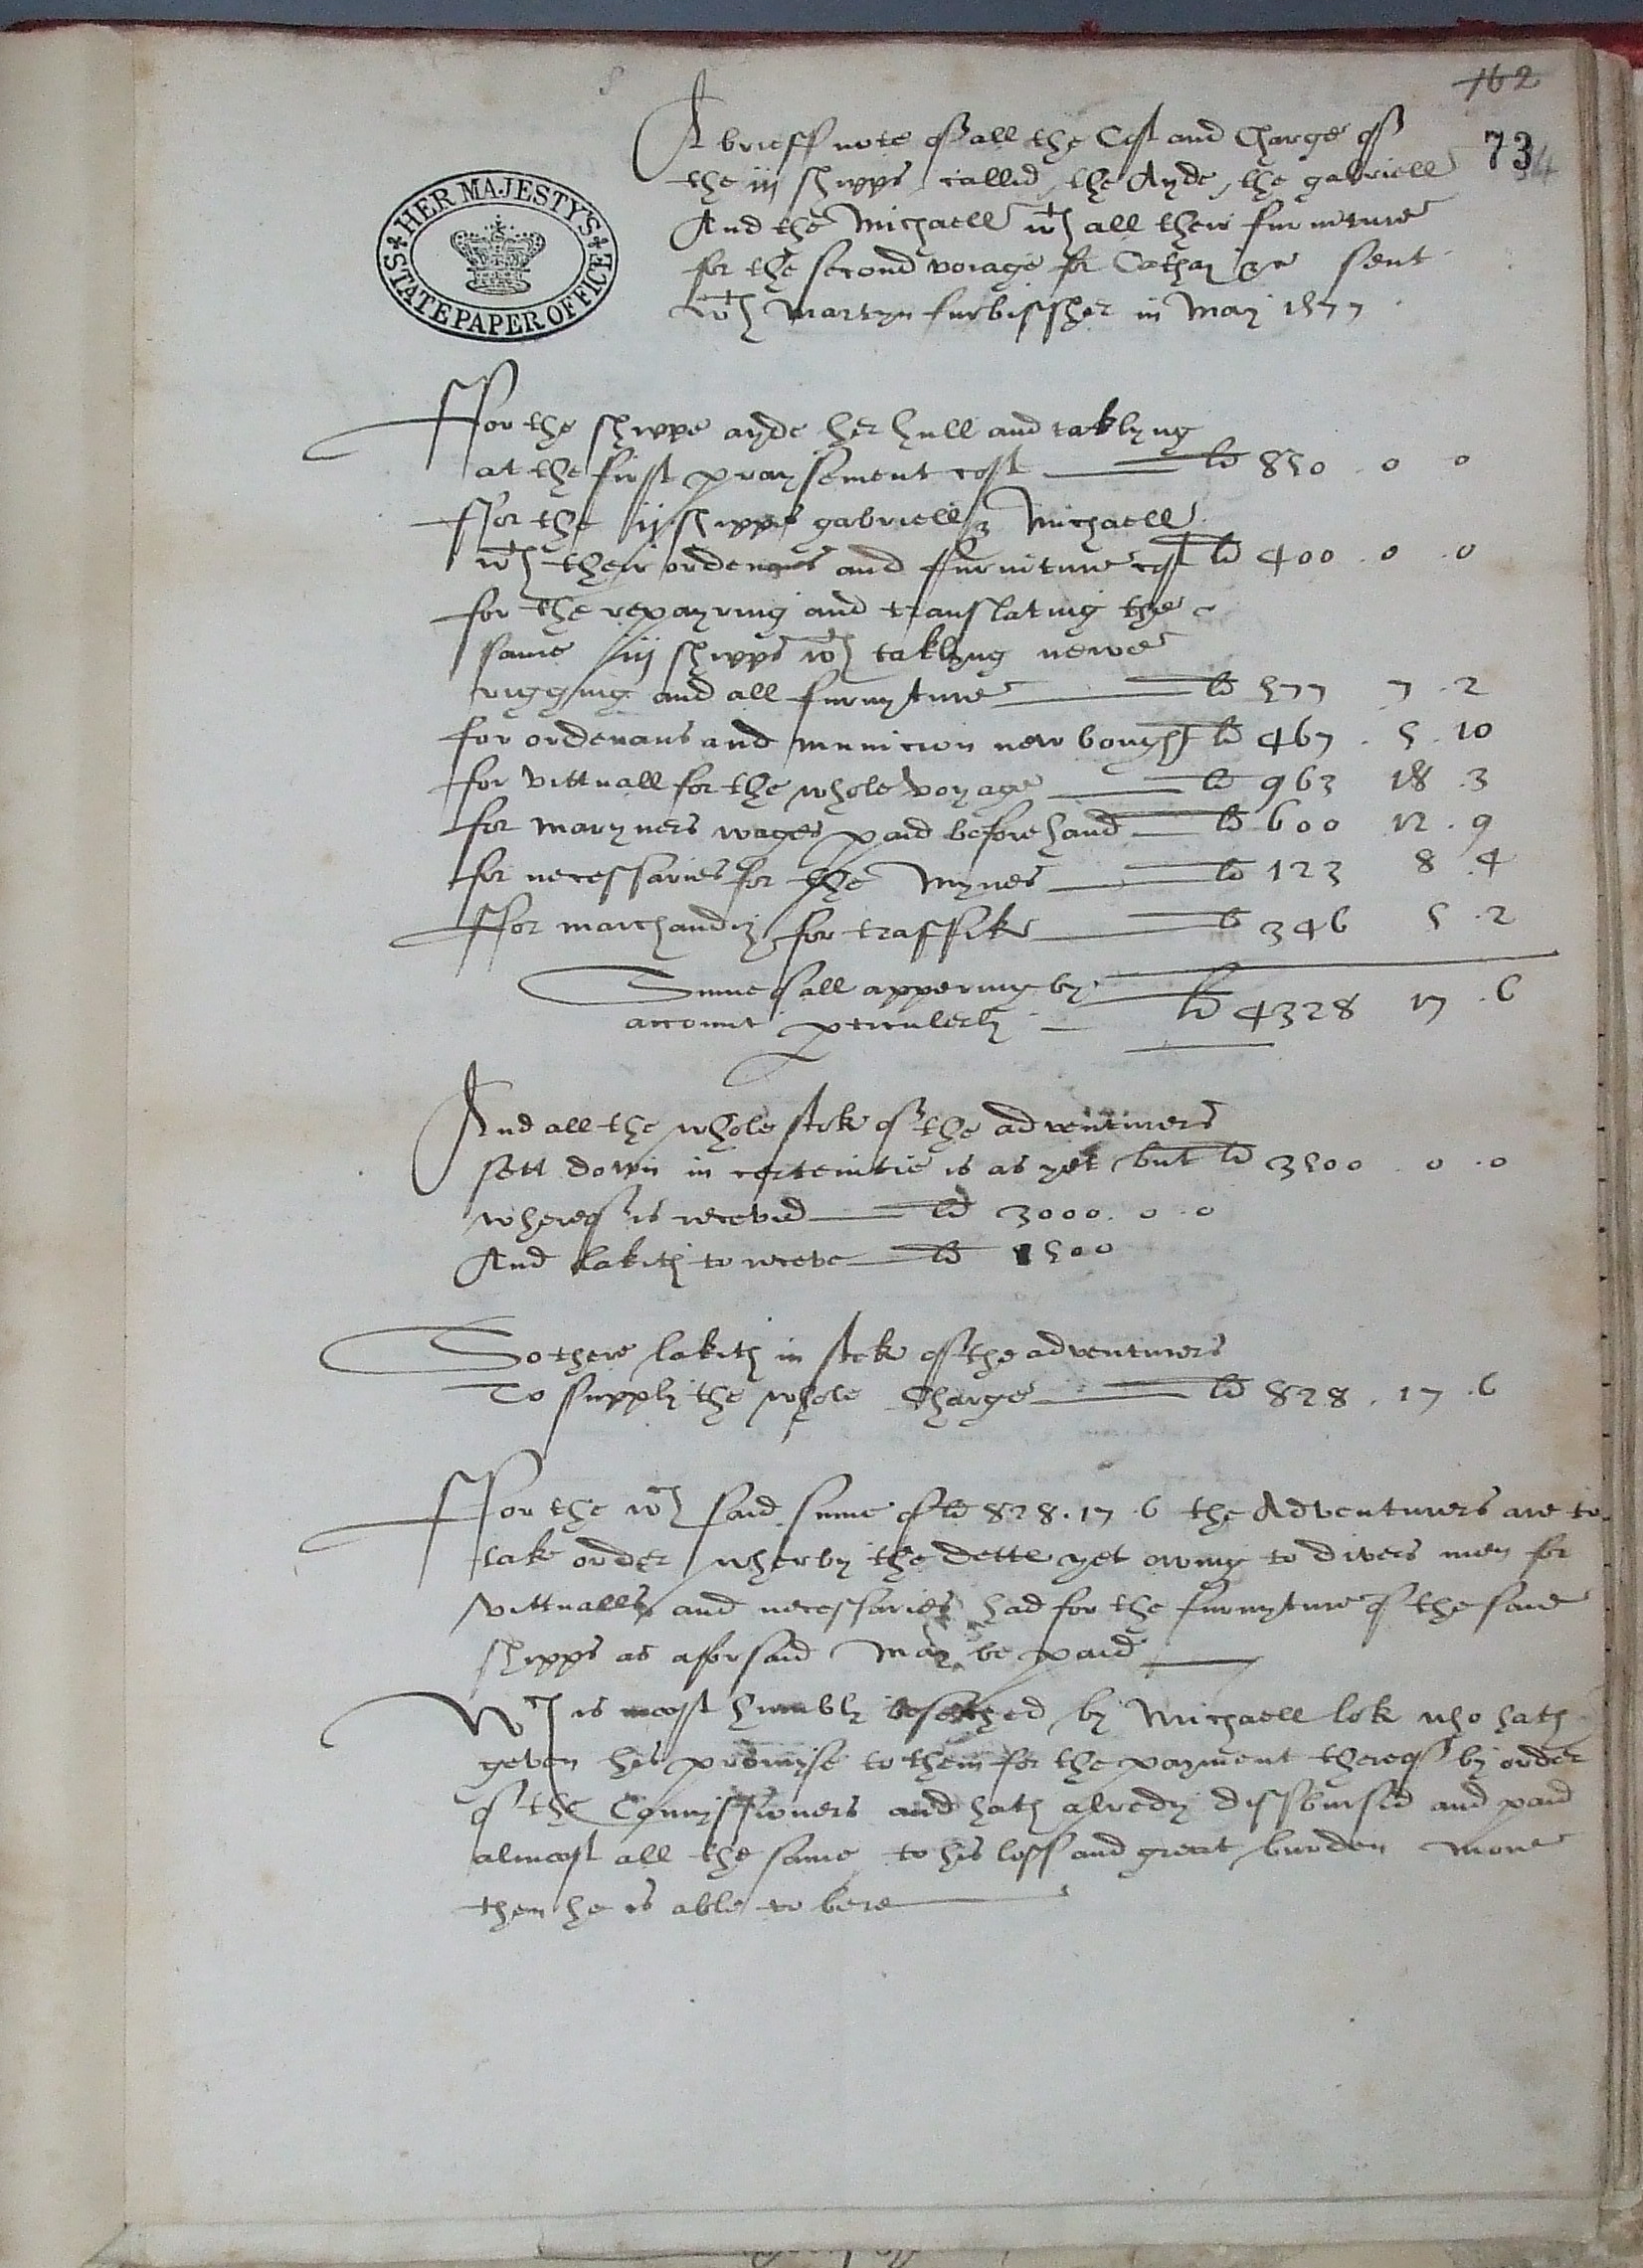 162
A brieff note off all the Cost and Charge off
73
the iij shipps callid the Ayde, the gabriell
HER MAJESTY'S STATE PAPER OFFICE
And the Michaell wth all their furniture
for the second voiage for Cathay &c sent
wth Martyn furbissher in May 1577
ffor the shippe ayde her hull and taklyng
at the first praysement cost li 850 . 0 0
ffor the ij shipps gabriell & Michaell
wth their ordenans and furniture cost li 400 . 0 . 0
for the repayring and translating the
same iij shipps wth taklyng newe
rigging and all furnyture li 577 7 . 2
for ordenans and municion new bought li 467 . 5 . 10
for vittuall for the whole voyage li 963 18 . 3
for maryners wages paid before hand li 600 12 . 9
for necessaries for the Mynes li 123 8 . 4
ffor marchandiz for traffike li 346 5 . 2
Sume of all appering by
account perticulerly li 4328 17 . 6
And all the whole stok of the adventurers
sett down in certeintie is as yet but li 3500 . 0 . 0
whereof is recevid li 3000 . 0 . 0
And lakith to receve li 500
So there lakith in stok of the adventurers
To supply the whole Charge li 828 . 17 . 6
ffor the wch said sume of li 828 . 17 . 6 the Adventurers are to
take order wherby the dette yet owing to divers men for
vittualls and necessaries had for the furnyture of the same
shipps as aforsaid may be paid
Wch is most humbly besetched by Michaell lok who hath
geven his promyse to them for the payment thereof by order
of the Comyssioners and hath alredy dissbursed and paid
almost all the same to his loss and great burden more
then he is able to bere